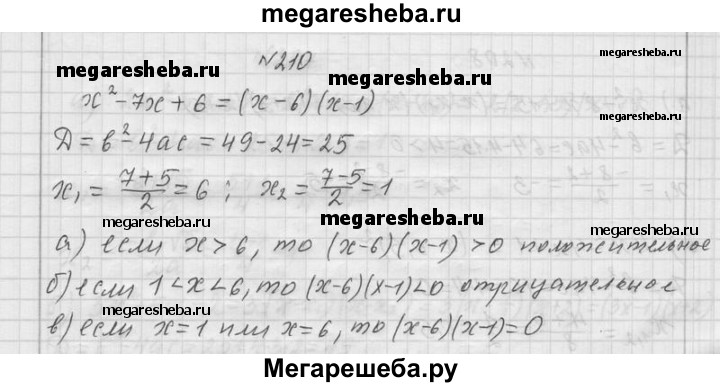 megaresheba.ru
№210
megaresheba.ru
megaresheba.ru
x²-7x+6=(x-6)(x-1)
D=b²-4ac=49-24=25
megaresheba.ru
x₁=(7+5)/2=6; x₂=(7-5)/2=1
megaresheba.ru
megaresheba.ru
а) если x>6, то (x-6)(x-1)>0 положительное
б) если 1<x<6, то (x-6)(x-1)<0 отрицательное
megaresheba.ru
megaresheba.ru
в) если x=1 или x=6, то (x-6)(x-1)=0
Мегарешеба.ру